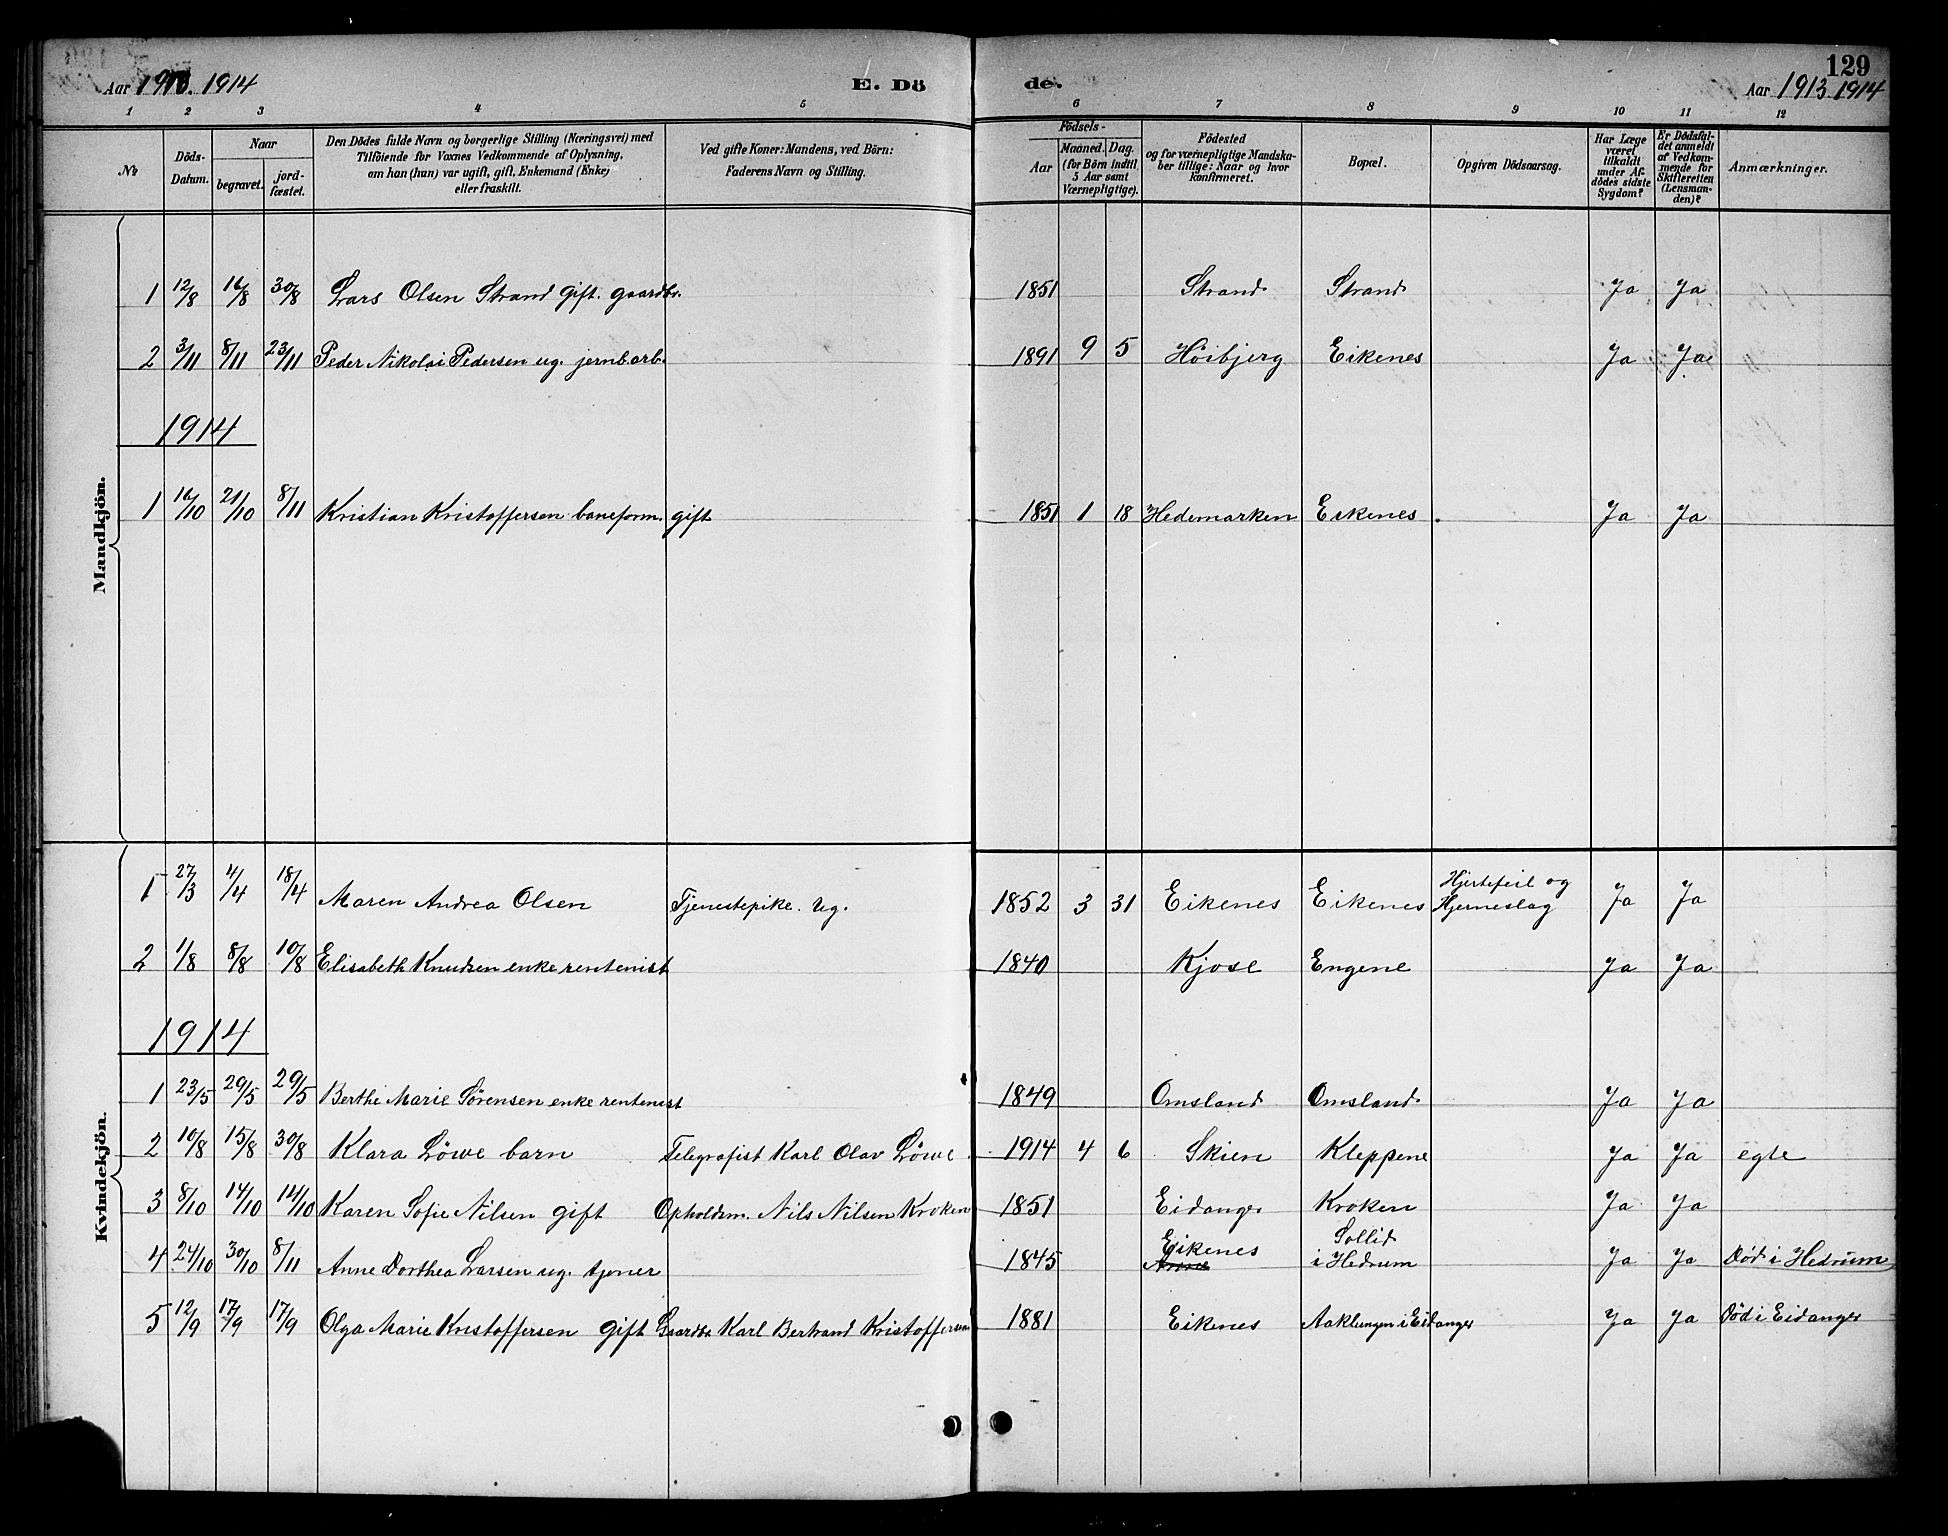 129
Aar 1913. 1914 E. Dö de. Aar 1913 1914
1 2 3 4 5 6 7 8 9 10 11 12
No
Döds-Datum.
Naar
begravet.
jord-fæstet.
Den Dödes fulde Navn og borgerlige Stilling (Næringsvei) med
Tilföiende for Voxnes Vedkommende af Oplysning,
om han (hun) var ugift, gift, Enkemand (Enke)
eller fraskilt.
Ved gifte Koner: Mandens, ved Börn:
Faderens Navn og Stilling.
Födsels-
Aar
Maaned. Dag.
(for Börn indtil
5 Aar samt
Værnepligtige).
Födested
og for værnepligtige Mandska-
ber tillige: Naar og hvor
konfirmeret.
Bopæl.
Opgiven Dödsaarsag.
Har Læge
været
tilkaldt
under Af-
dödes sidste
Sygdom?
Er Dödsfal-
det anmeldt
af Vedkom-
mende for
Skifteretten
(Lensman-
den)?
Anmærkninger.
Mandkjön.
1 12/8 16/8 30/8 Lars Olsen Strand gift. gaardbr. 1851 Strand Strand Ja Ja
2 3/11 8/11 23/11 Peder Nikolai Pedersen ug. jernb.arb. 1891 9 5 Höibjerg Eikenes Ja Ja
1914
1 16/10 21/10 8/11 Kristian Kristoffersen baneform. gift 1851 1 18 Hedemarken Eikenes. Ja Ja
Kvindekjön.
1 27/3 4/4 18/4 Maren Andrea Olsen Tjenestepike. ug. 1852 3 31 Eikenes Eikenes Hjertefeil og Hjerneslag Ja Ja
2 1/8 8/8 10/8 Elisabeth Knudsen enke rentenist 1840 Kjose Engene Ja Ja
1914
1 23/5 29/5 29/5 Berthe Marie Sörensen enke rentenist 1849 Omsland Omsland Ja Ja
2 10/8 15/8 30/8 Klara Löwe barn Telegrafist Karl Olav Löwe 1914 4 6 Skien Kleppene Ja Ja egte
3 8/10 14/10 14/10 Karen Sofie Nilsen gift Opholdsm. Nils Nilsen Kroken 1851 Eidanger Kroken Ja Ja
4 24/10 30/10 8/11 Anne Dorthea Larsen ug. tjener 1845 Eikenes Sollid i Hedrum Ja Ja Död i Hedrum
5 12/9 17/9 17/9 Olga Marie Kristoffersen gift Gaardbr. Karl Bertrand Kristoffersen 1881 Eikenes Aaklungen i Eidanger Ja Ja Död i Eidanger